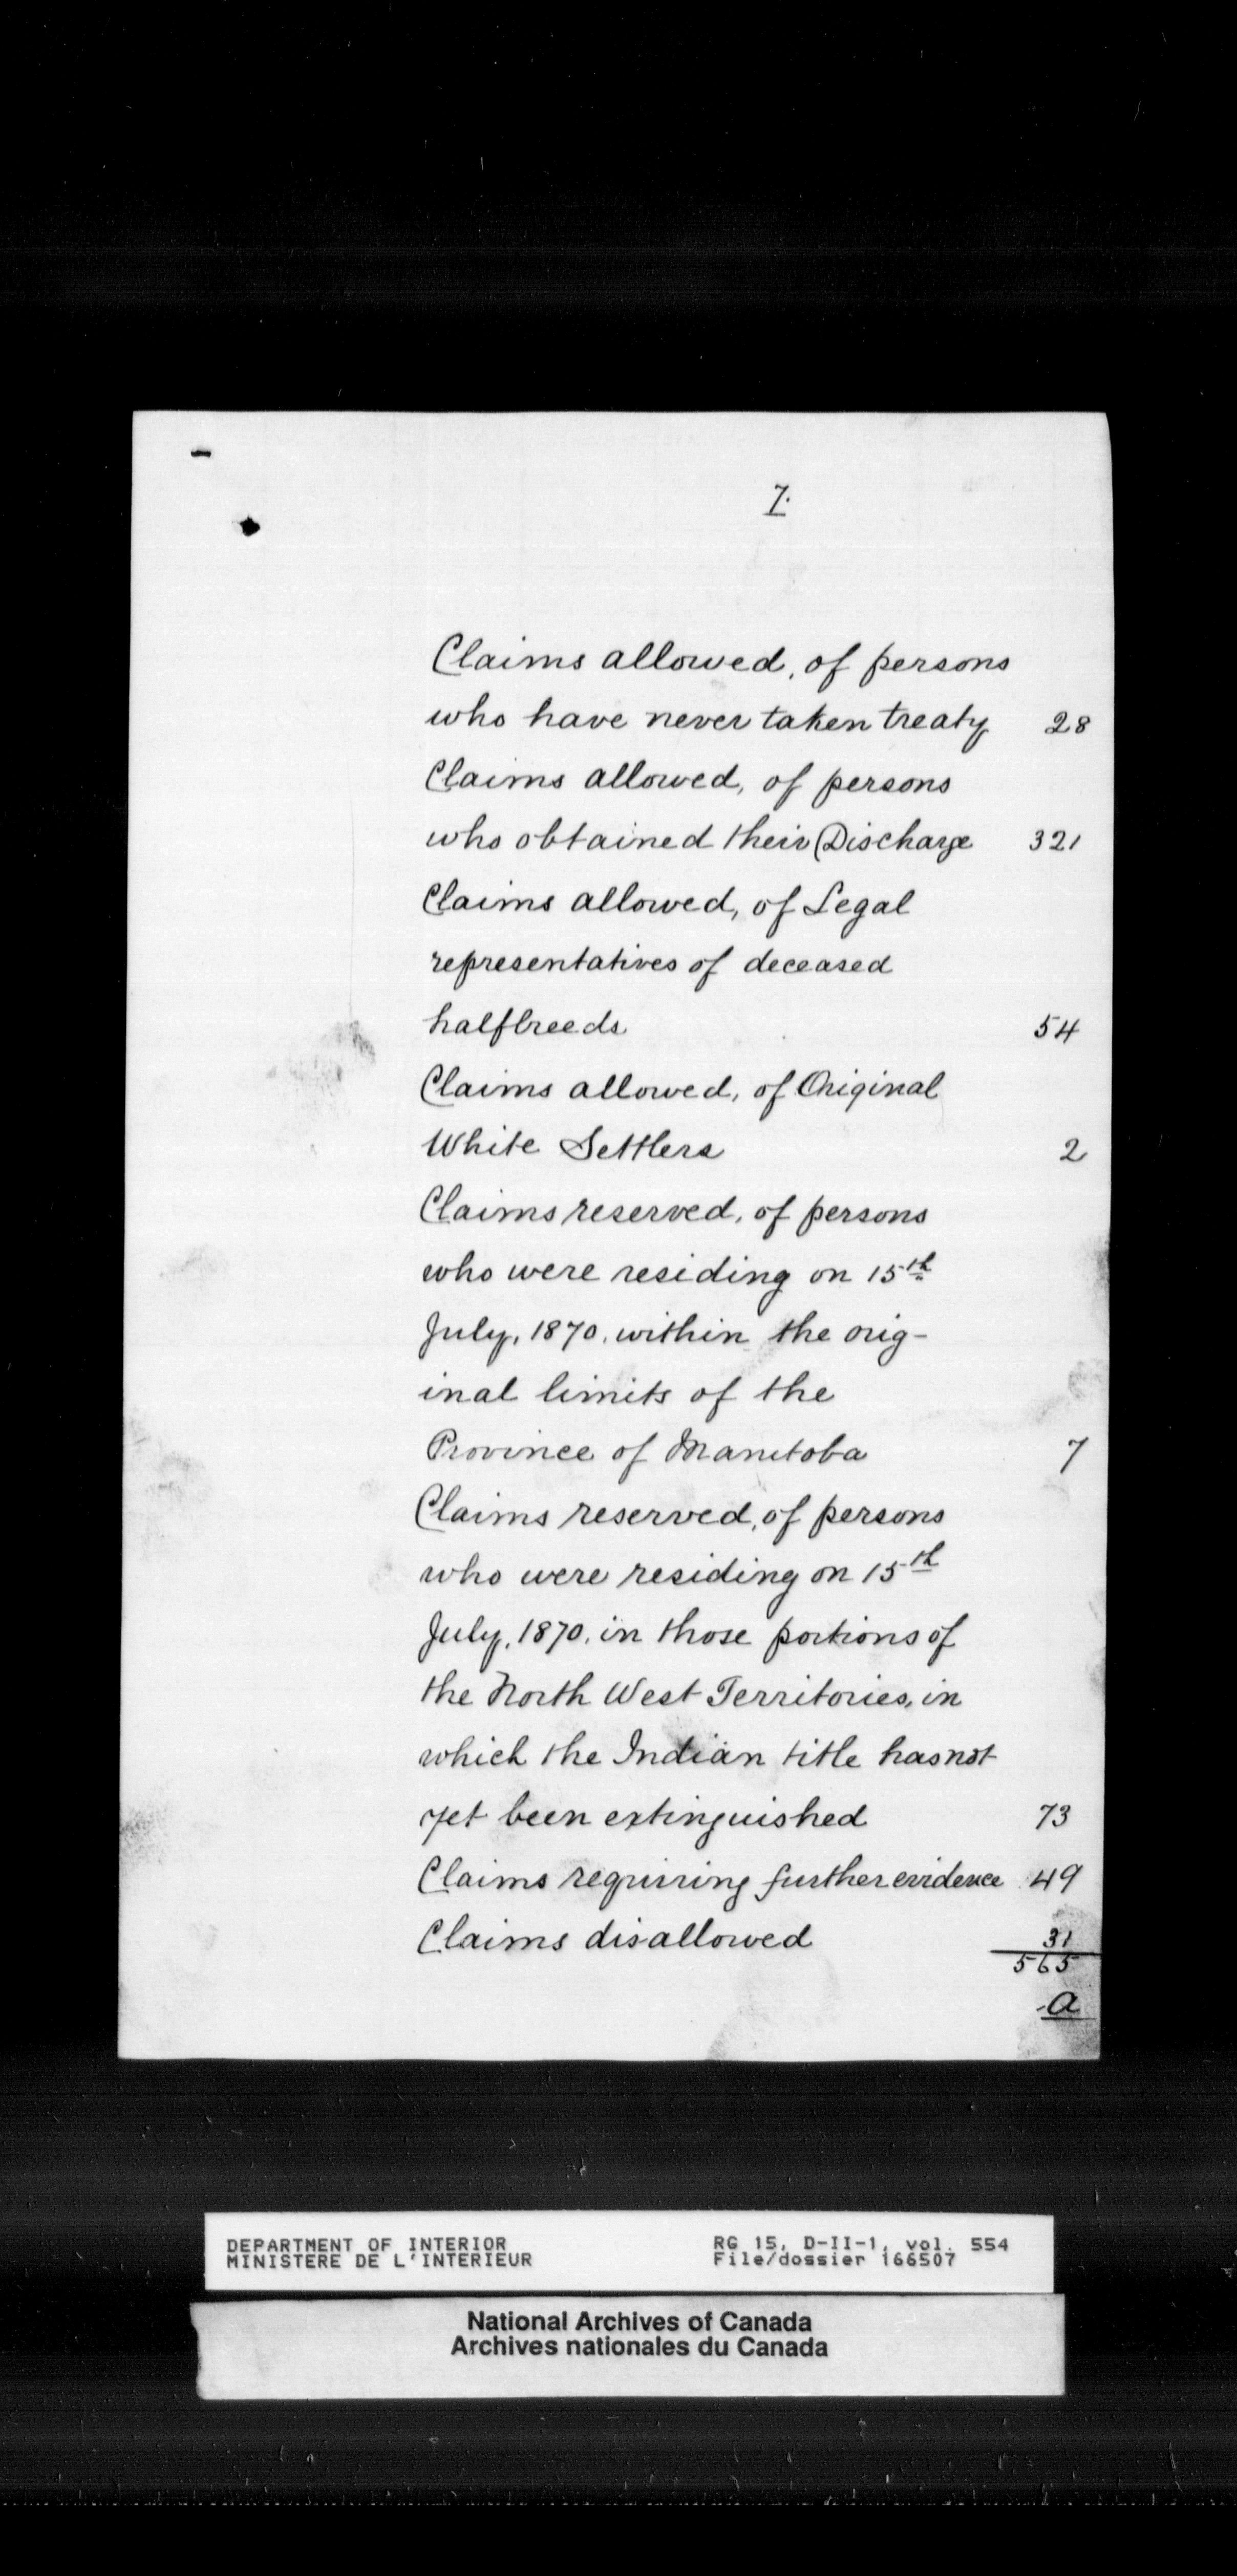 7.
Claims allowed, of persons
who have never taken treaty 28
Claims allowed, of persons
who obtained their Discharge 321
Claims allowed, of Legal
representatives of deceased
halfbreeds 54
Claims allowed, of Original
White Settlers 2
Claims reserved, of persons
who were residing on 15th
July, 1870, within the orig-
inal limits of the
Province of Manitoba 7
Claims reserved, of persons
who were residing on 15th
July, 1870, in those portions of
the North West Territories, in
which the Indian title has not
yet been extinguished 73
Claims requiring further evidence 49
Claims disallowed 31
565
a
DEPARTMENT OF INTERIOR RG 15, D-II-1, vol. 554
MINISTERE DE L'INTERIEUR File/dossier 166507
National Archives of Canada
Archives nationales du Canada